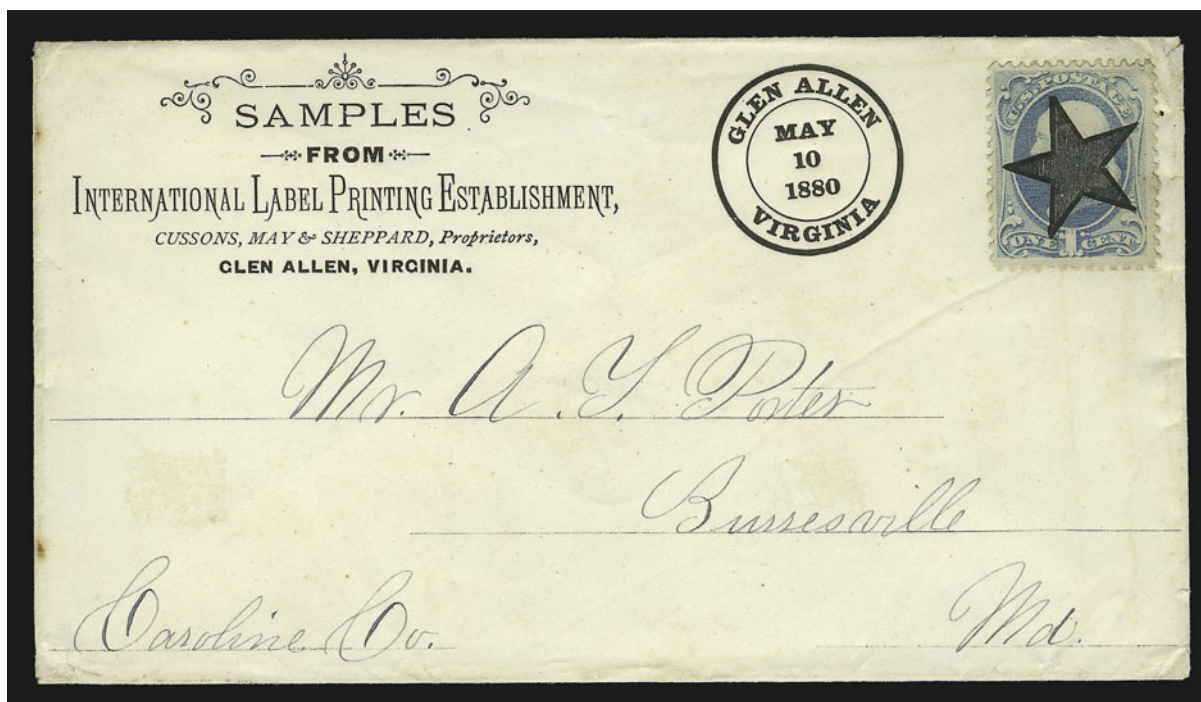 SAMPLES
FROM
INTERNATIONAL LABEL PRINTING ESTABLISHMENT,
CUSSONS, MAY & SHEPPARD, Proprietors,
GLEN ALLEN, VIRGINIA.
GLEN ALLEN
MAY
10
1880
VIRGINIA
U.S. POSTAGE
ONE 1 CENT
Mr. A. Y. Porter
Burresville
Caroline Co. Md.